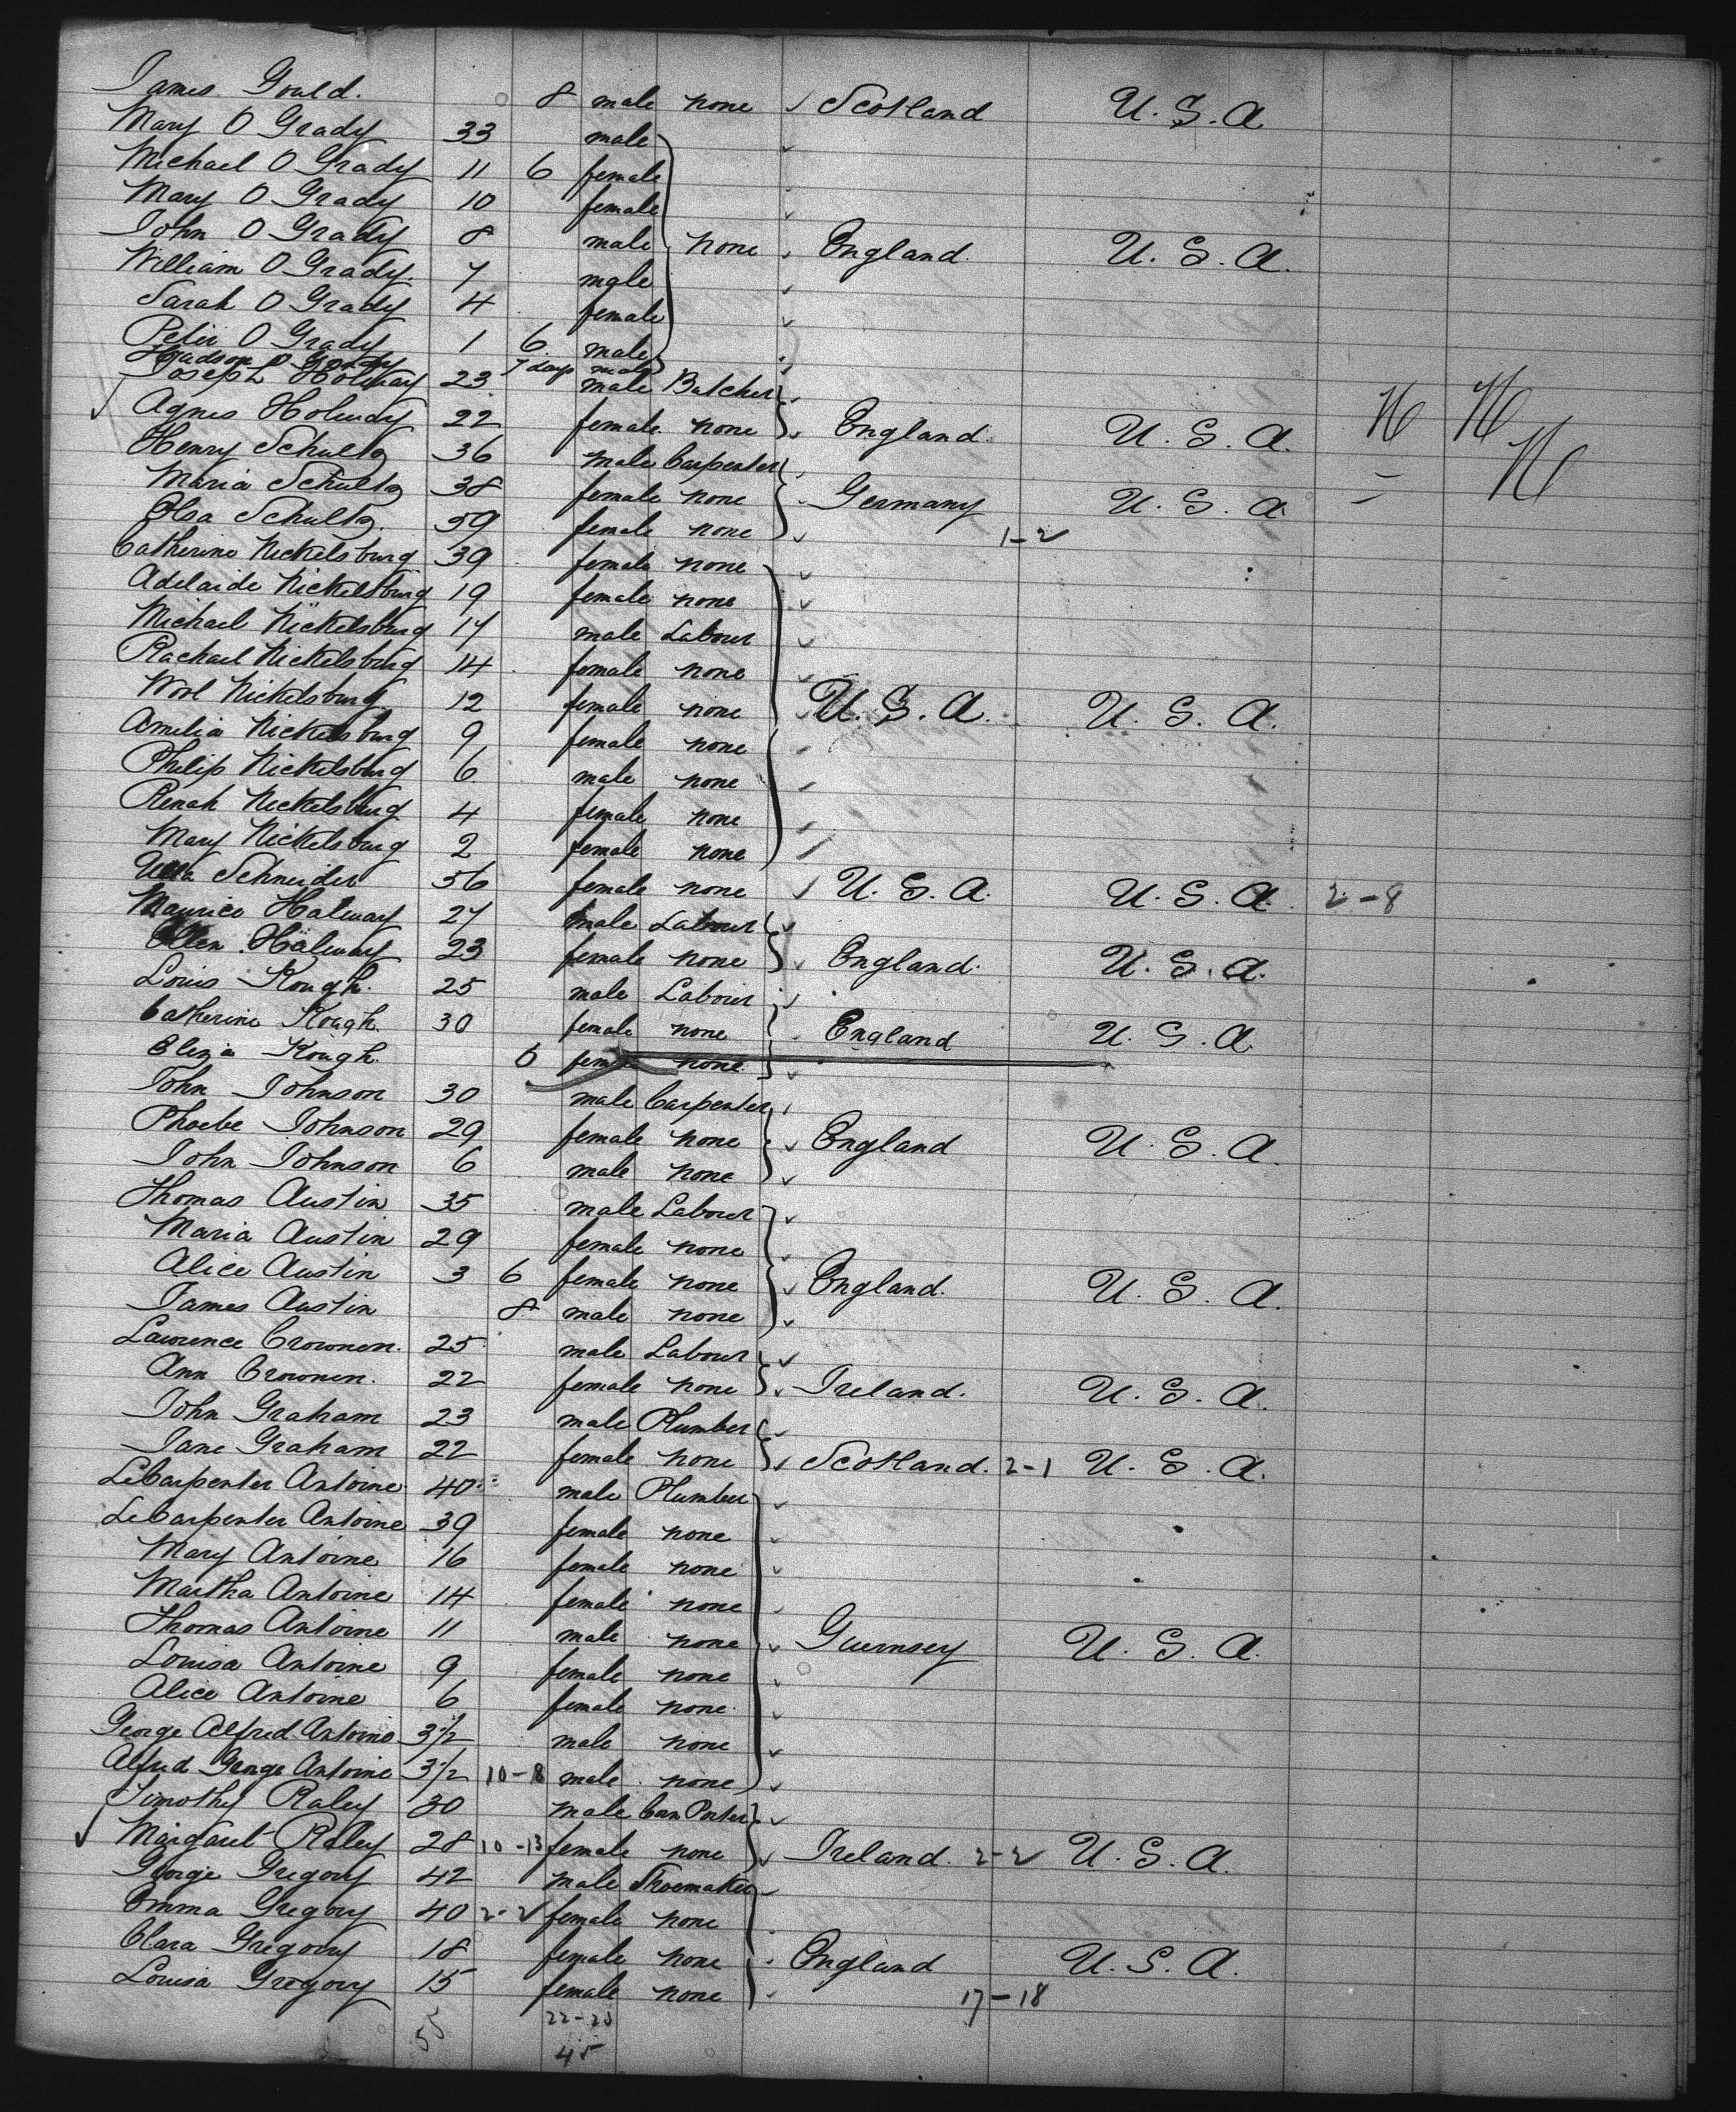 Liberty St. N. Y.
James Gould. 8 male none ✓ Scotland U. S. A
Mary O Grady 33 male
Michael O Grady 11 6 female
Mary O Grady 10 female
John O Grady 8 male none England. U. S. A.
William O Grady. 7 male
Sarah O Grady 4 female
Peter O Grady 1 6 male
Hudson O Grady 7 days male
Joseph Holway 23 male Butcher
Agnes Holway 22 female none England. U. S. A.
Henry Schultz 36 male Carpenter
Maria Schultz 38 female none Germany U. S. A
Elsa Schultz. 59 female none 1-2
Catherine Nickelsburg 39 female none
Adelaide Nickelsburg 19 female none
Michael Nickelsburg 17 male Labour
Rachael Nickelsburg 14 female none
Nickelsburg 12 female none U. S. A. U. S. A.
Amelia Nickelsburg 9 female none
Philip Nickelsburg 6 male none
Renah Nickelsburg 4 female none
Mary Nickelsburg 2 female none
Schneider 56 female none U. S. A. U. S. A. 2-8
Maurice Halway 27 male Labour
Ellen Halway 23 female none England. U. S. A.
Louis Kough. 25 male Labour
Catherine Kough. 30 female none England U. S. A
Eliza Kough. 6 female none
John Johnson 30 male Carpenter
Phoebe Johnson 29 female none England U. S. A.
John Johnson 6 male none
Thomas Austin 35 male Labour
Maria Austin 29 female none
Alice Austin 3 6 female none England. U. S. A.
James Austin 8 male none
Lawrence Crownen. 25 male Labour
Ann Crownen. 22 female none Ireland. U. S. A.
John Graham 23 male Plumber
Jane Graham 22 female none Scotland. 2-1 U. S. A.
LeCarpenter Antoine 40 male Plumber
LeCarpenter Antoine 39 female none
Mary Antoine 16 female none
Martha Antoine 14 female none
Thomas Antoine 11 male none Guernsey U. S. A.
Louisa Antoine 9 female none
Alice Antoine 6 female none
George Alfred Antoine 3 1/2 male none
Alfred George Antoine 3 1/2 10-8 male none
Timothy Raley 30 male Porter
Margaret Raley 28 10-13 female none Ireland. 2-2 U. S. A.
George Gregory 42 male Shoemaker
Emma Gregory 40 2-2 female none
Clara Gregory 18 female none England U. S. A.
Louisa Gregory 15 female none 17-18
55 22-23
45